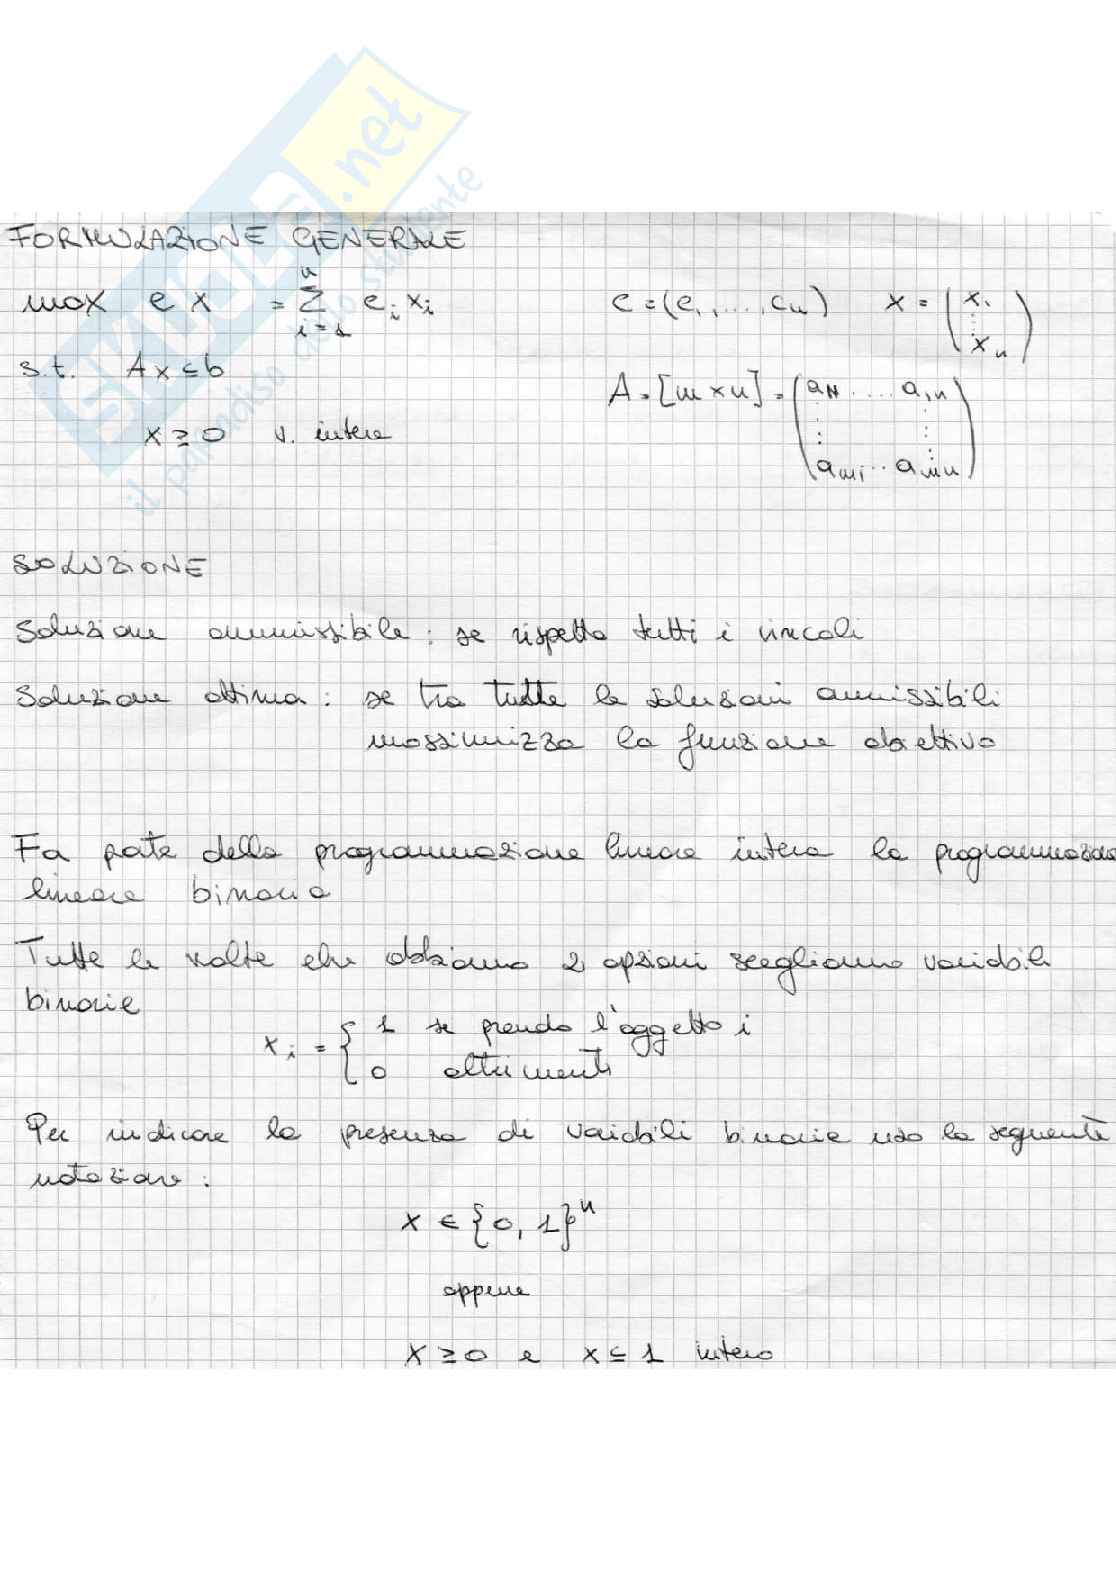 SKUOLA.net
il paradiso dello studente
FORMULAZIONE GENERALE
max c x = Σ_{i=1}^{n} c_i x_i
c = (c_1, ..., c_n) x = (x_1 ⋮ x_n)
s.t. Ax ≤ b
A = [m × n] = (a_11 .... a_1n ⋮ ⋮ a_m1 ... a_mn)
x ≥ 0 v. intera
SOLUZIONE
Soluzione ammissibile : se rispetta tutti i vincoli
Soluzione ottima : se tra tutte le soluzioni ammissibili
massimizza la funzione obiettivo
Fa parte della programmazione lineare intera la programmazione
lineare binaria
Tutte le volte che abbiamo 2 opzioni scegliamo variabili
binarie
x_i = { 1 se prendo l'oggetto i
0 altrimenti
Per indicare la presenza di variabili binarie uso la seguente
notazione :
x ∈ {0, 1}^n
oppure
x ≥ 0 e x ≤ 1 intero